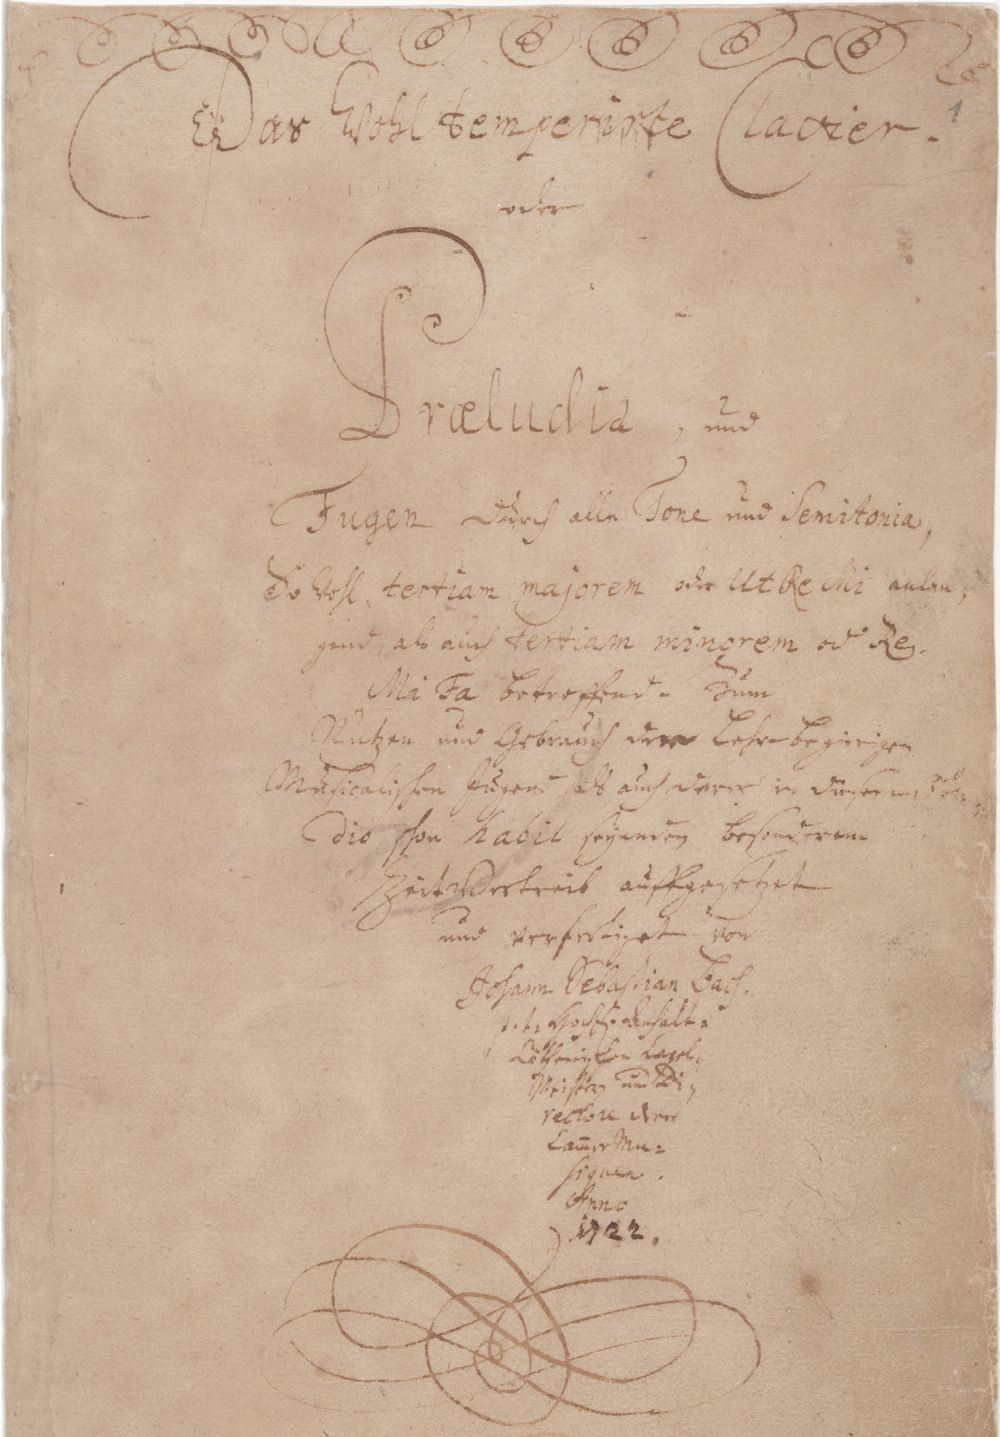 Das Wohltemperirte Clavier.
oder
Præludia, und
Fugen durch alle Tone und Semitonia,
So wohl tertiam majorem oder Ut Re Mi anlan-
gend, als auch tertiam minorem oder Re
Mi Fa betreffend. Zum
Nutzen und Gebrauch der Lehrbegierigen
Musicalischen Jugend, als auch derer in diesem stu-
dio schon habil seyenden besonderem
ZeitVertreib auffgesetzet
und verfertiget von
Johann Sebastian Bach.
p. t: HochF. Anhalt-
Cöthenischen Capel-
Meistern und Di-
rectore derer
CammerMu-
siquen.
Anno
1722.
1